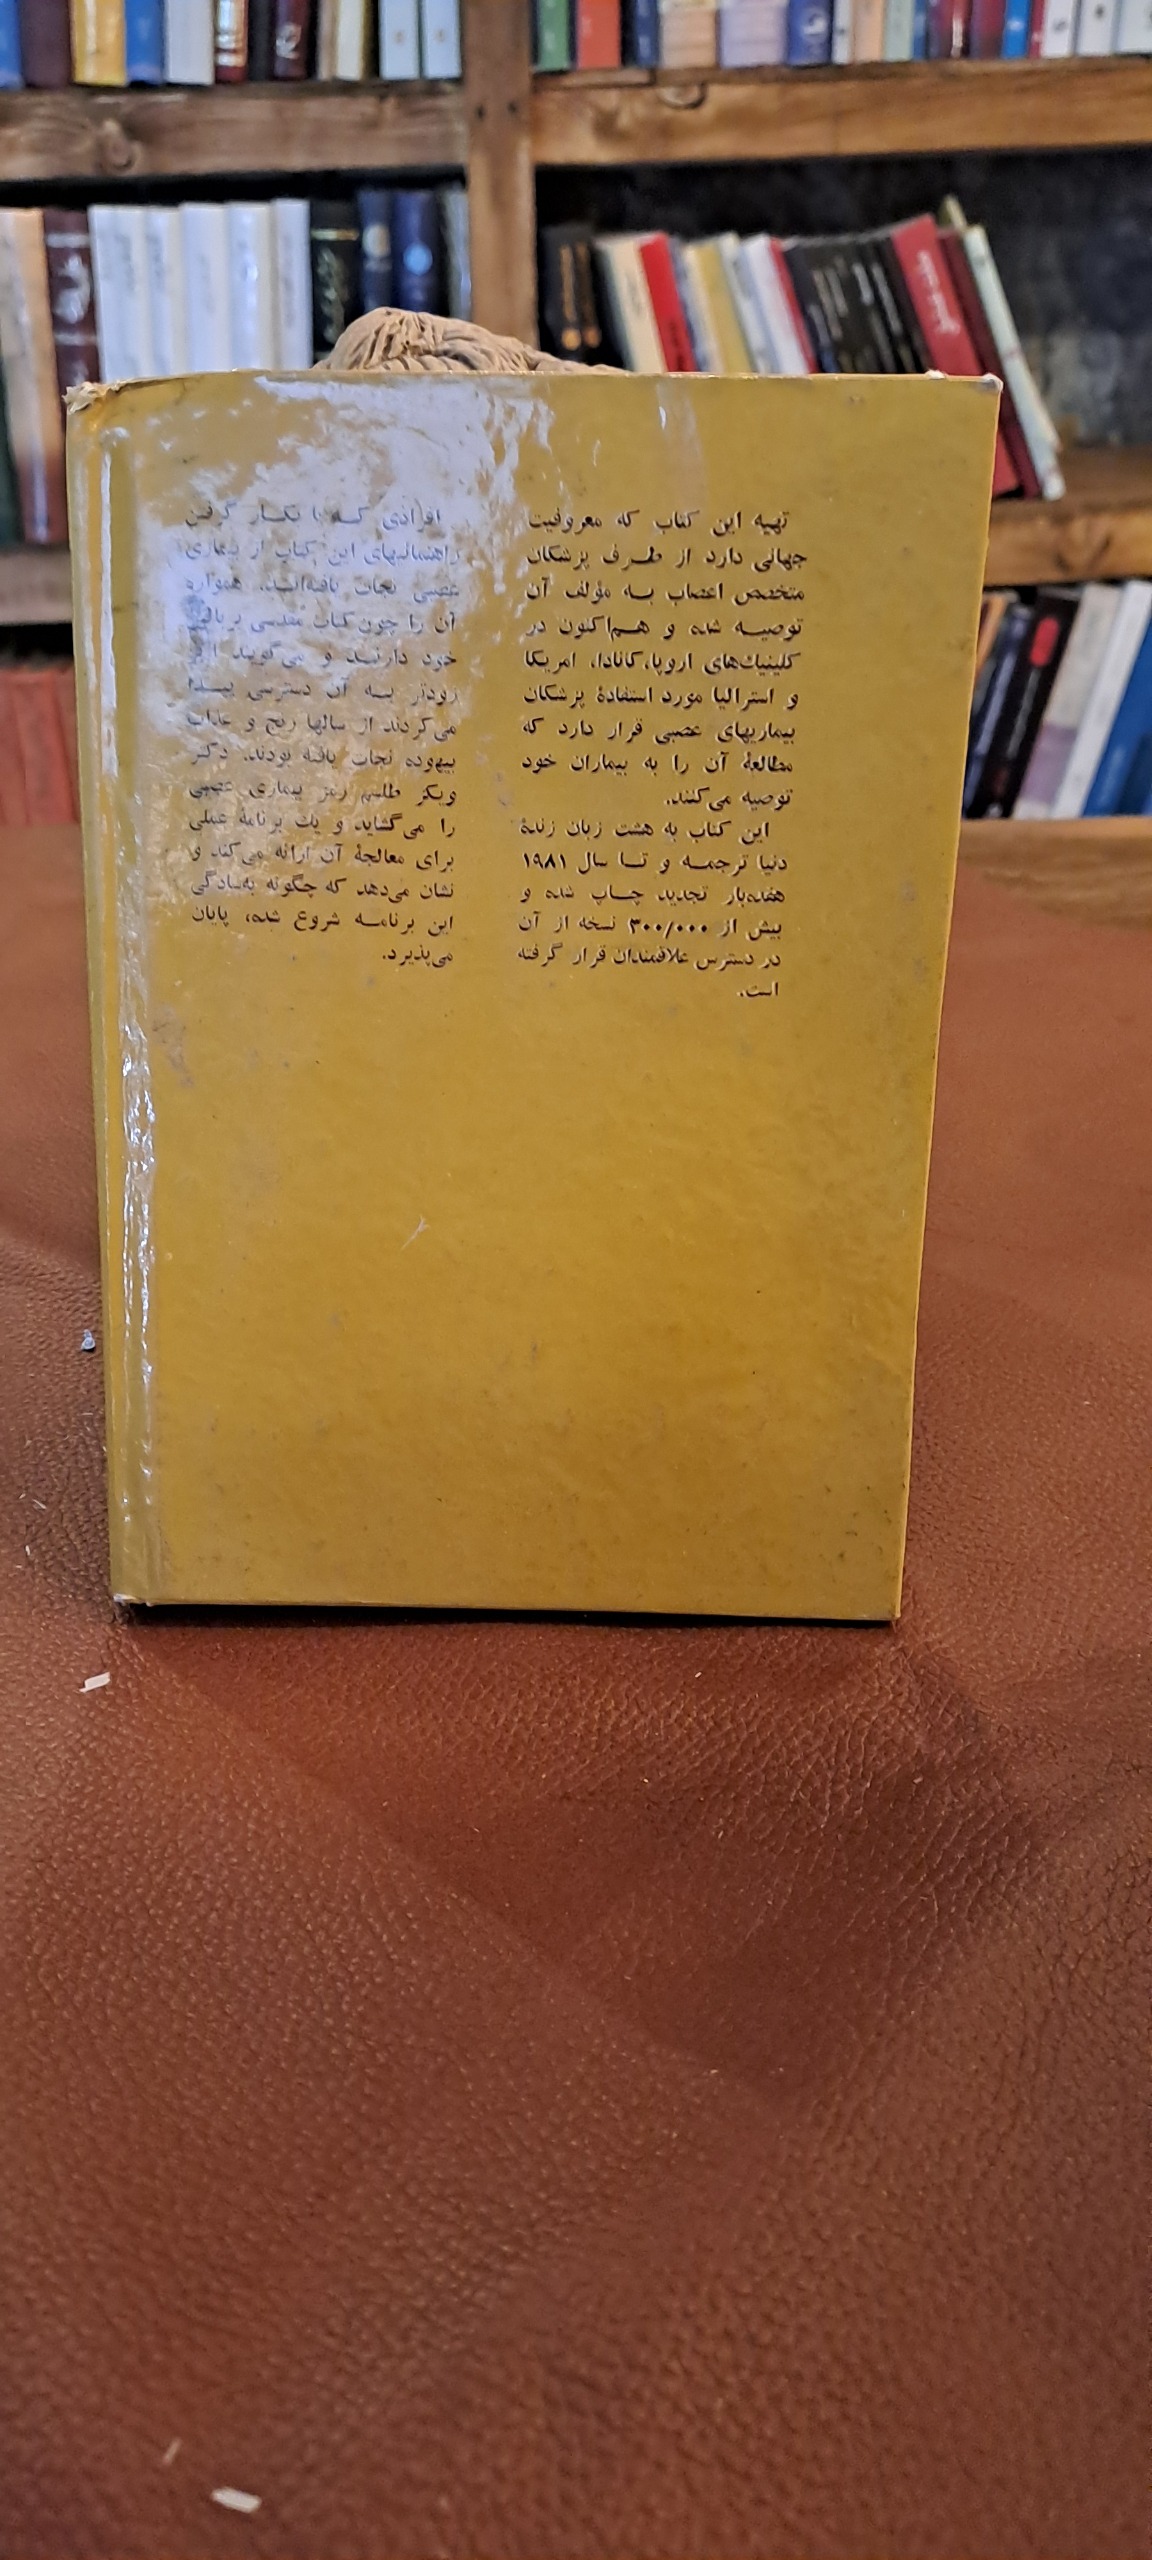 تهیه این کتاب که معروفیت
جهانی دارد از طرف پزشکان
متخصص اعصاب به مؤلف آن
توصیه شده و هم‌اکنون در
کلینیک‌های اروپا، کانادا، امریکا
و استرالیا مورد استفادهٔ پزشکان
بیماریهای عصبی قرار دارد که
مطالعهٔ آن را به بیماران خود
توصیه می‌کنند.
این کتاب به هشت زبان زندهٔ
دنیا ترجمه و تا سال ۱۹۸۱
هفده‌بار تجدید چاپ شده و
بیش از ۳۰۰/۰۰۰ نسخه از آن
در دسترس علاقمندان قرار گرفته
است.
افرادی که با بکار گرفتن
راهنمائیهای این کتاب از بیماری
عصبی نجات یافته‌اند. همواره
آن را چون کتاب مقدسی بر بالین
خود دارند و می‌گویند اگر
زودتر به آن دسترسی پیدا
می‌کردند از سالها رنج و عذاب
بیهوده نجات یافته بودند. دکتر
ویکز طلسم رمز بیماری عصبی
را می‌گشاید و یک برنامهٔ عملی
برای معالجهٔ آن ارائه می‌کند و
نشان می‌دهد که چگونه به‌سادگی
این برنامه شروع شده، پایان
می‌پذیرد.